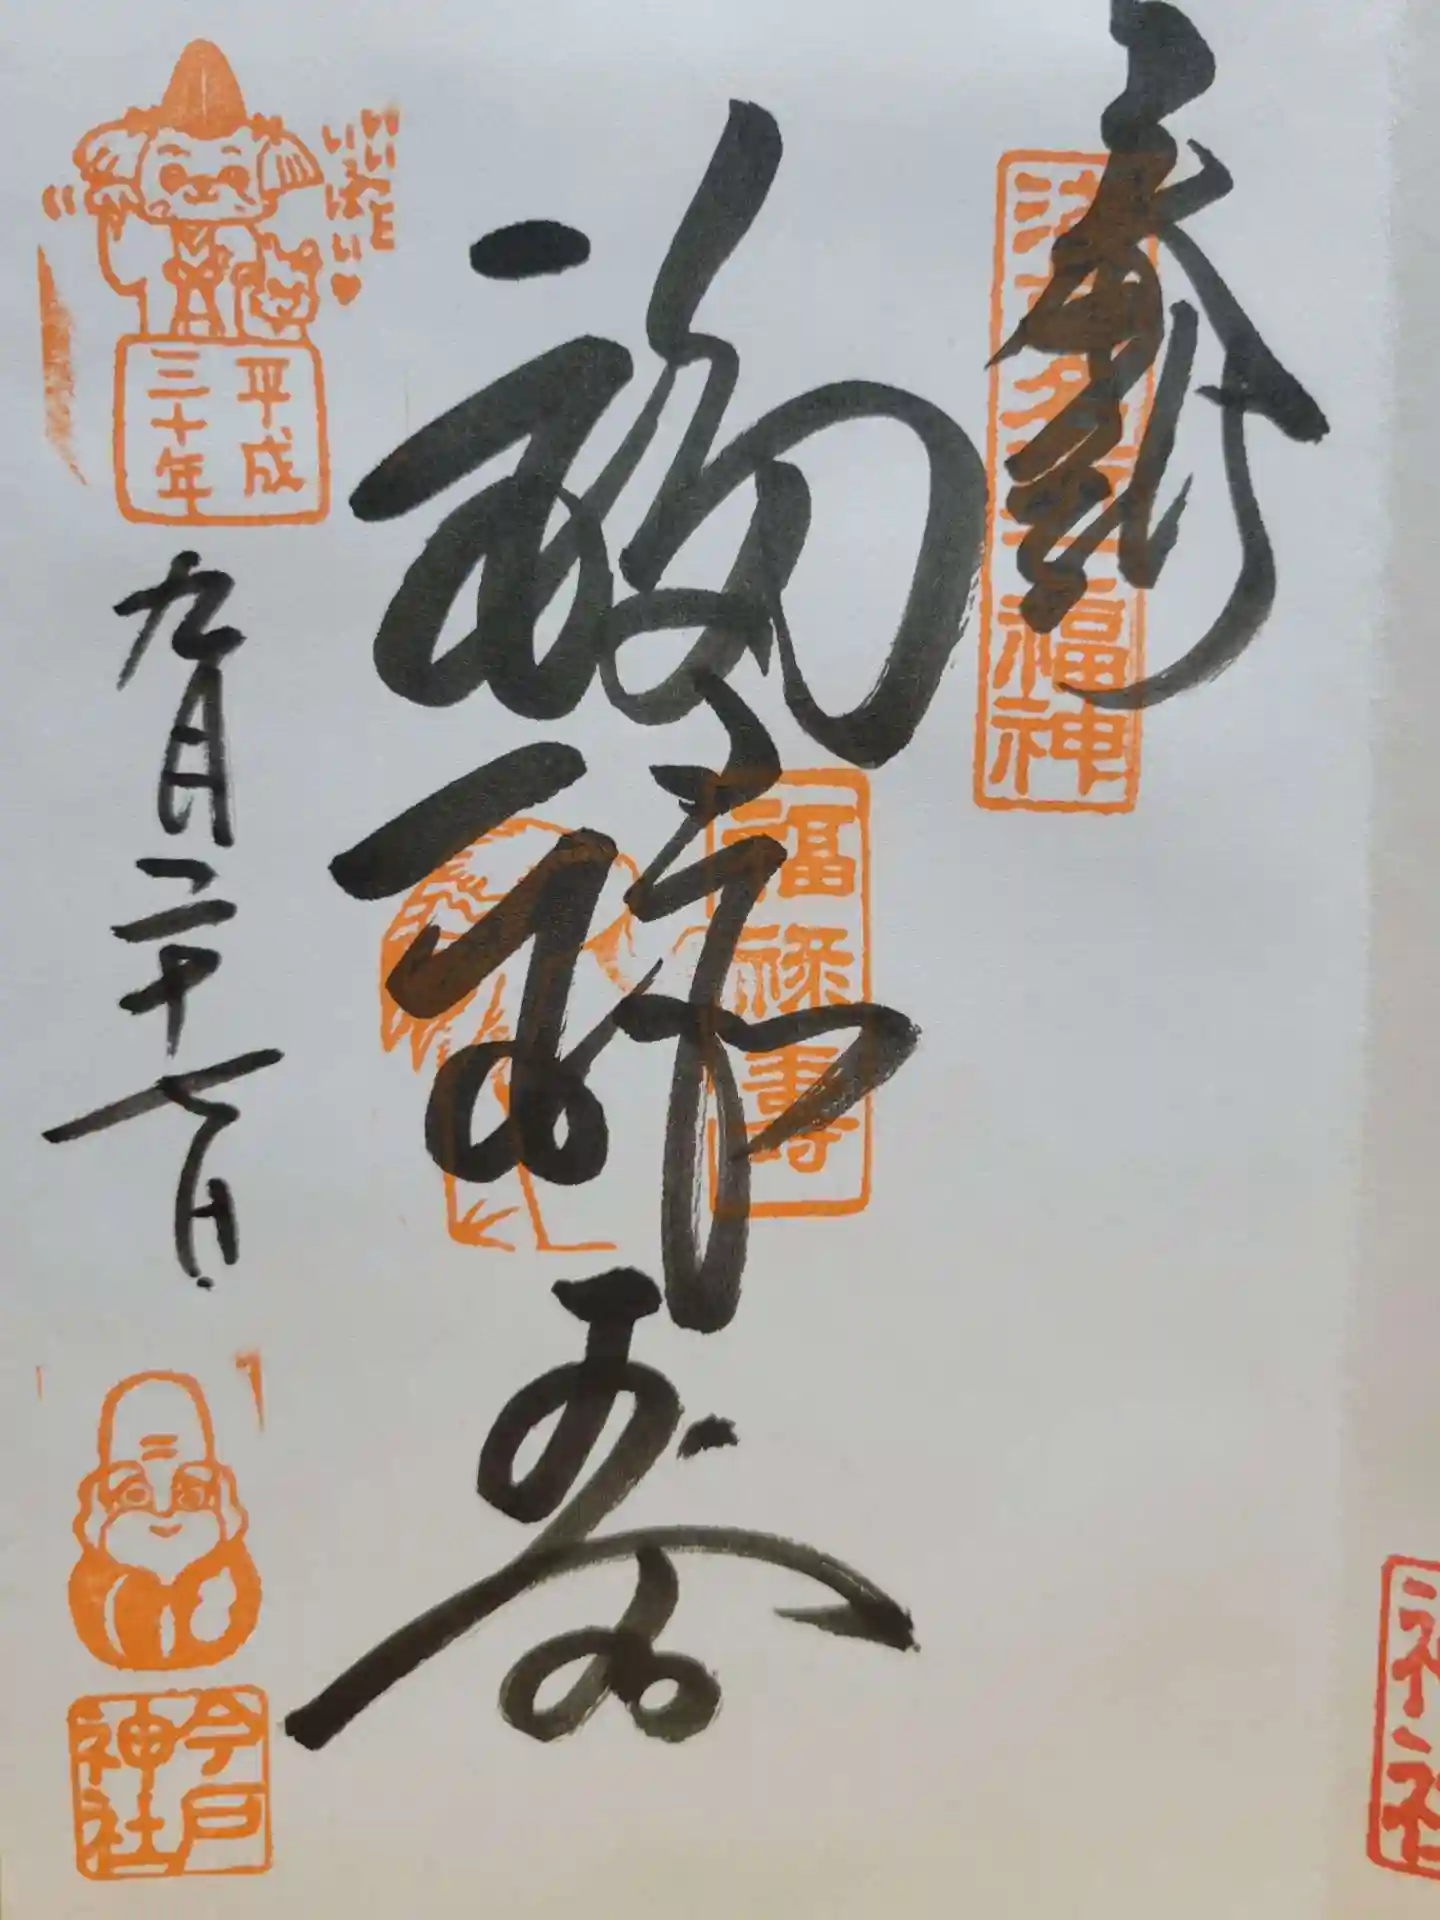 奉拝
浅草名所七福神
福禄寿
福禄寿
平成
三十年
九月二十七日
今戸
神社